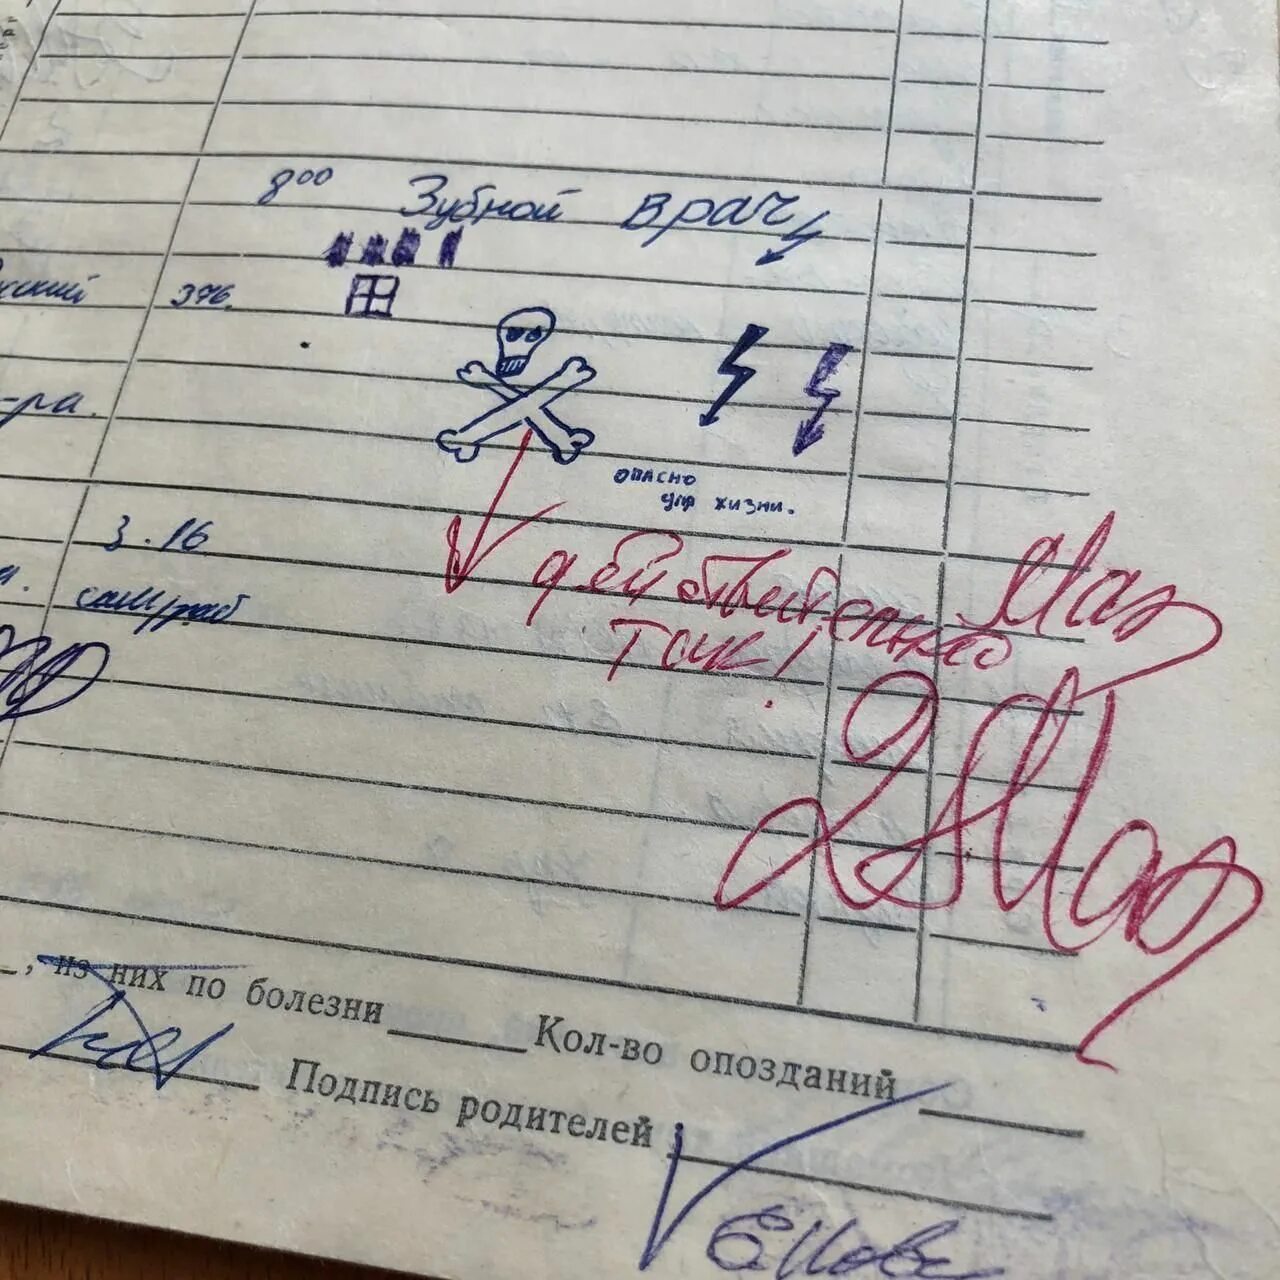 8⁰⁰ Зубной врач
376.
опасно
упр жизни.
3.16
действительно
так!
2
, из них по болезни Кол-во опозданий
Подпись родителей